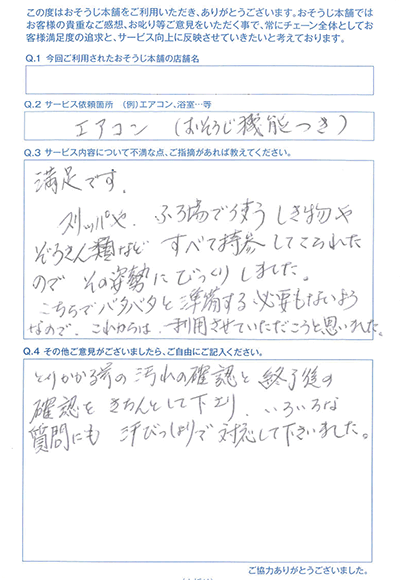 この度はおそうじ本舗をご利用いただき、ありがとうございます。おそうじ本舗では
お客様の貴重なご感想、お叱り等ご意見をいただく事で、常にチェーン全体としてお
客様満足度の追求と、サービス向上に反映させていきたいと考えております。
Q.1 今回ご利用されたおそうじ本舗の店舗名
Q.2 サービス依頼箇所 (例)エアコン、浴室…等
エアコン (おそうじ機能つき)
Q.3 サービス内容について不満な点、ご指摘があれば教えてください。
満足です。
スリッパや、ふろ場で使うしき物や
ぞうきん類など すべて持参してこられた
ので その姿勢にびっくりしました。
こちらでバタバタと準備する必要もないよう
なので、これからは利用させていただこうと思いました。
Q.4 その他ご意見がございましたら、ご自由にご記入ください。
とりかかる前の汚れの確認と終了後の
確認をきちんとして下さり、いろいろな
質問にも 汗びっしょりで対応して下さいました。
ご協力ありがとうございました。